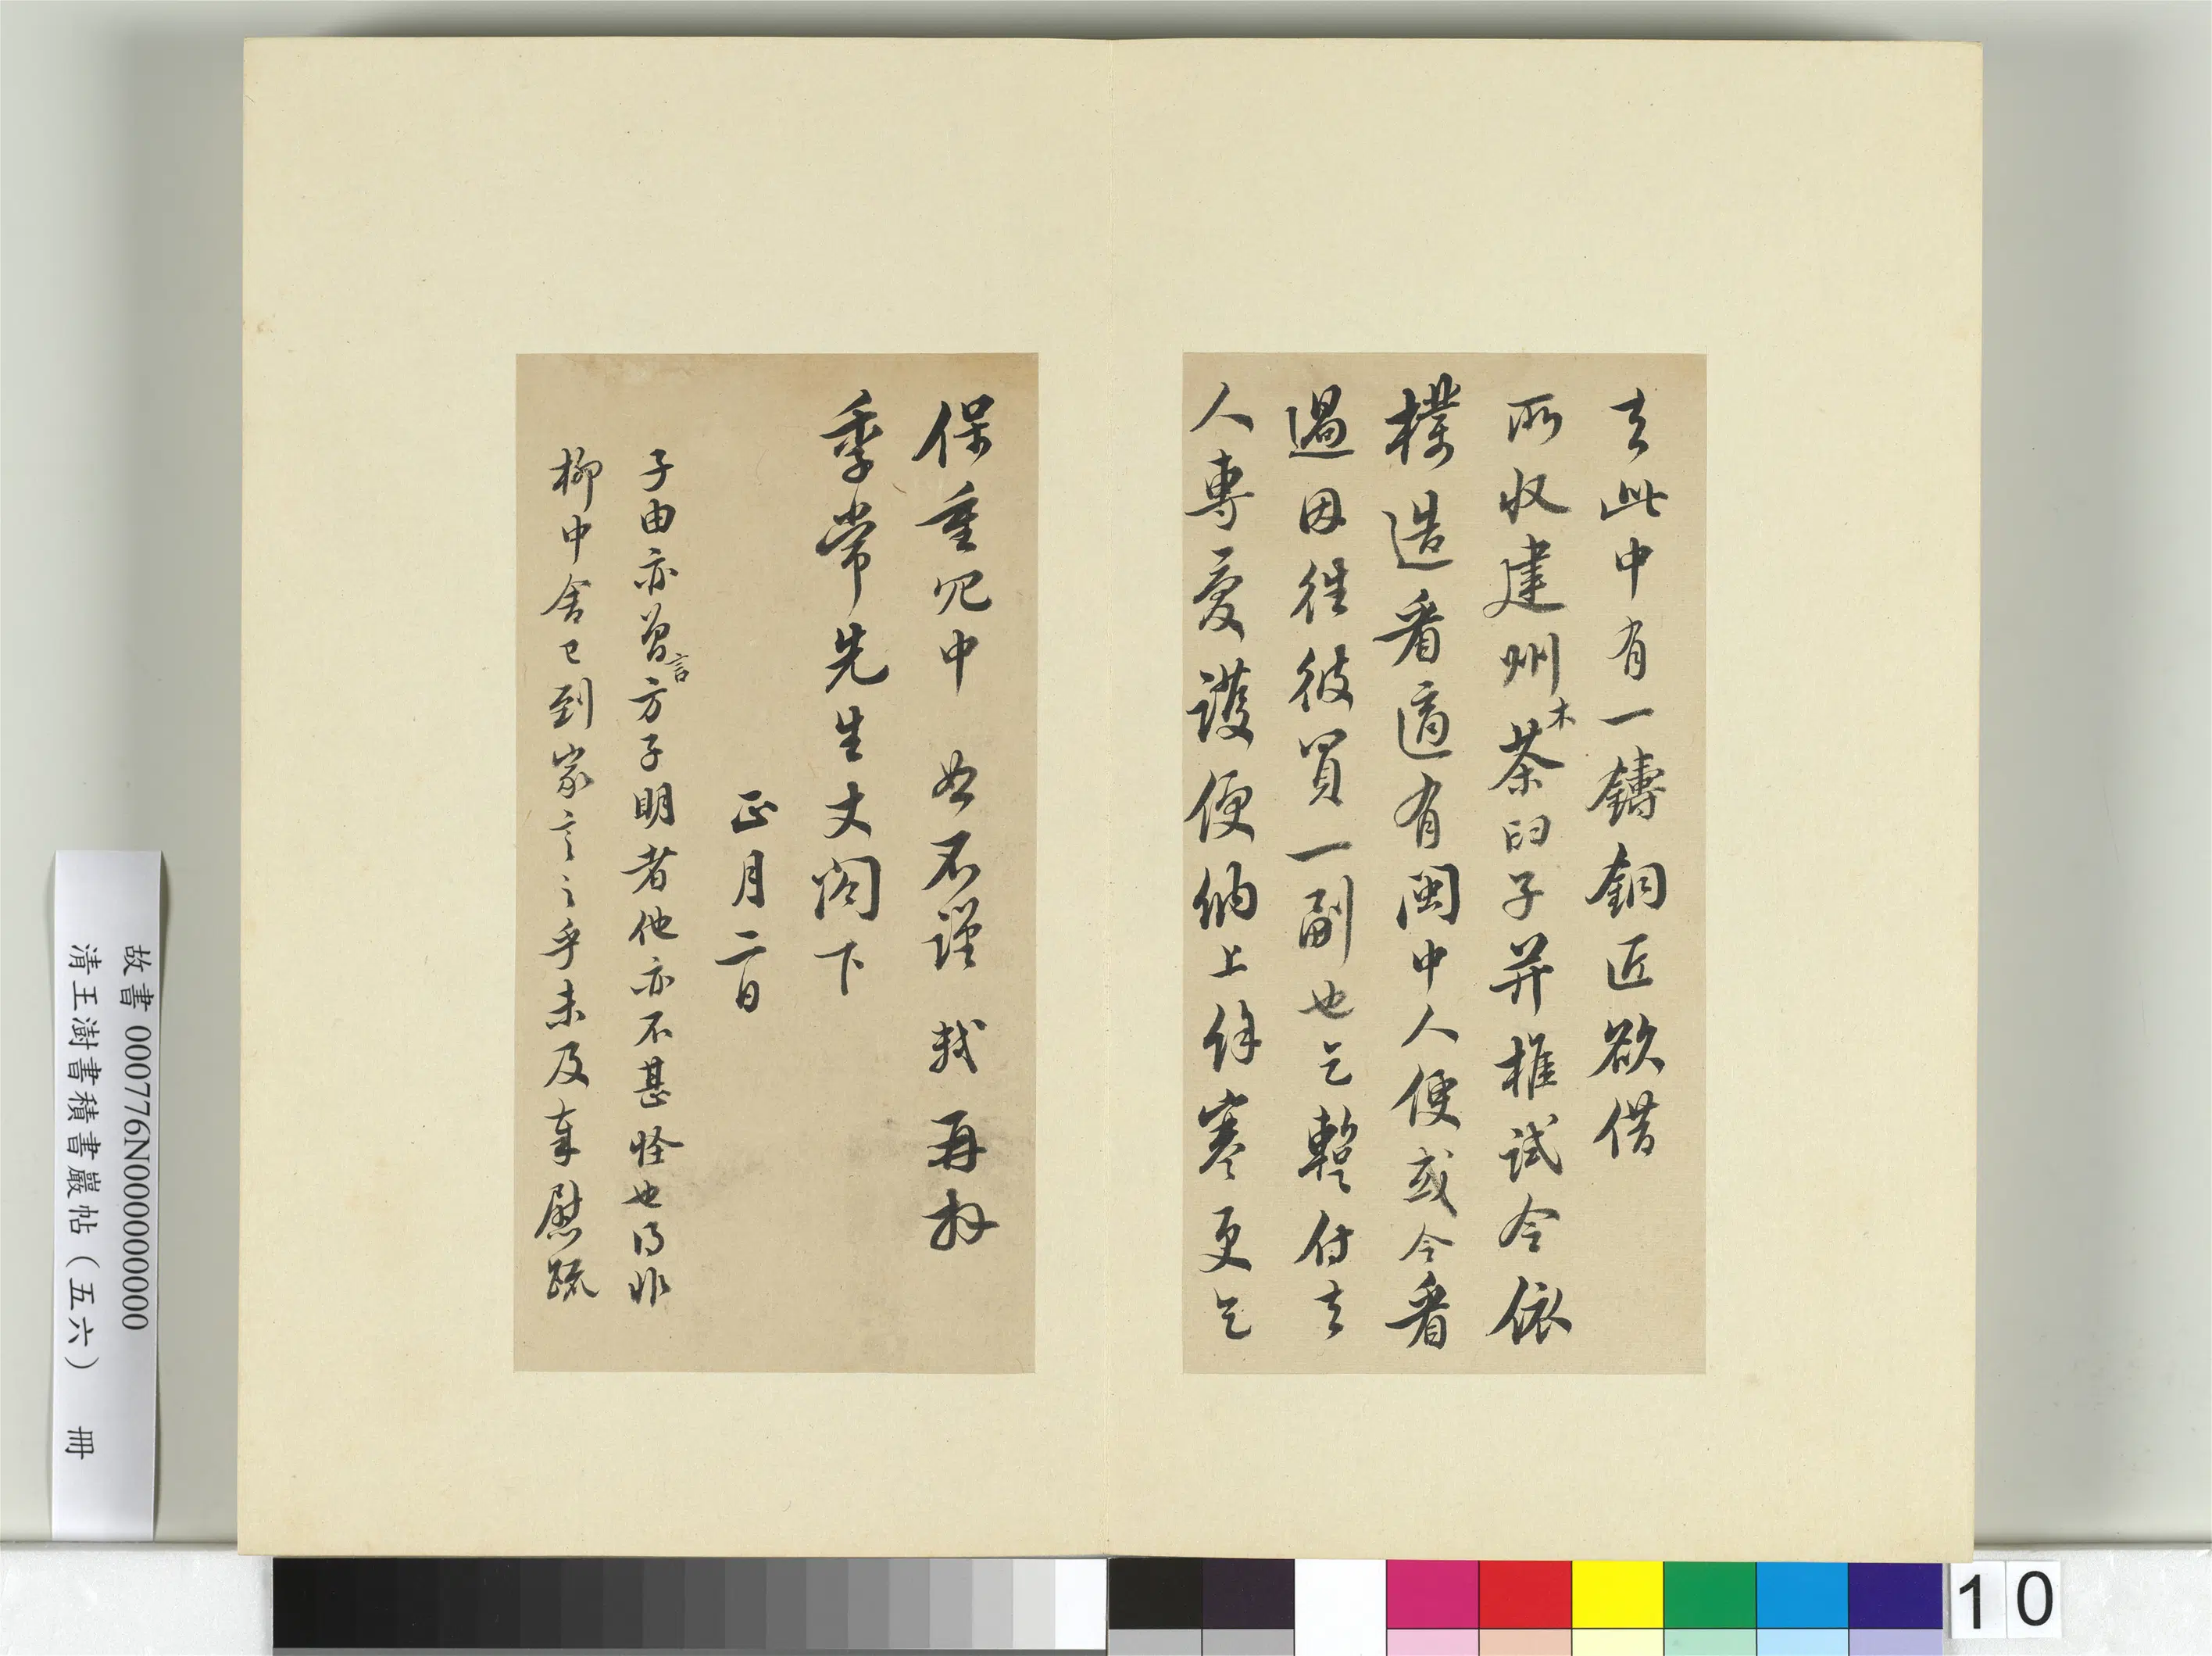 去此中有一鑄銅匠欲借
所收建州木茶臼子并椎試令依
樣造看適有閩中人便或令看
過因往彼買一副也乞蹔付去
人專愛護便納上餘寒更乞
保重冗中恕不謹軾再拜
季常先生丈閣下
正月二日
子由亦曾言方子明者他亦不甚怪也得非
柳中舍已到家言之乎未及奉慰疏
故書 000776N000000000
清王澍書積書巖帖（五六） 冊
10